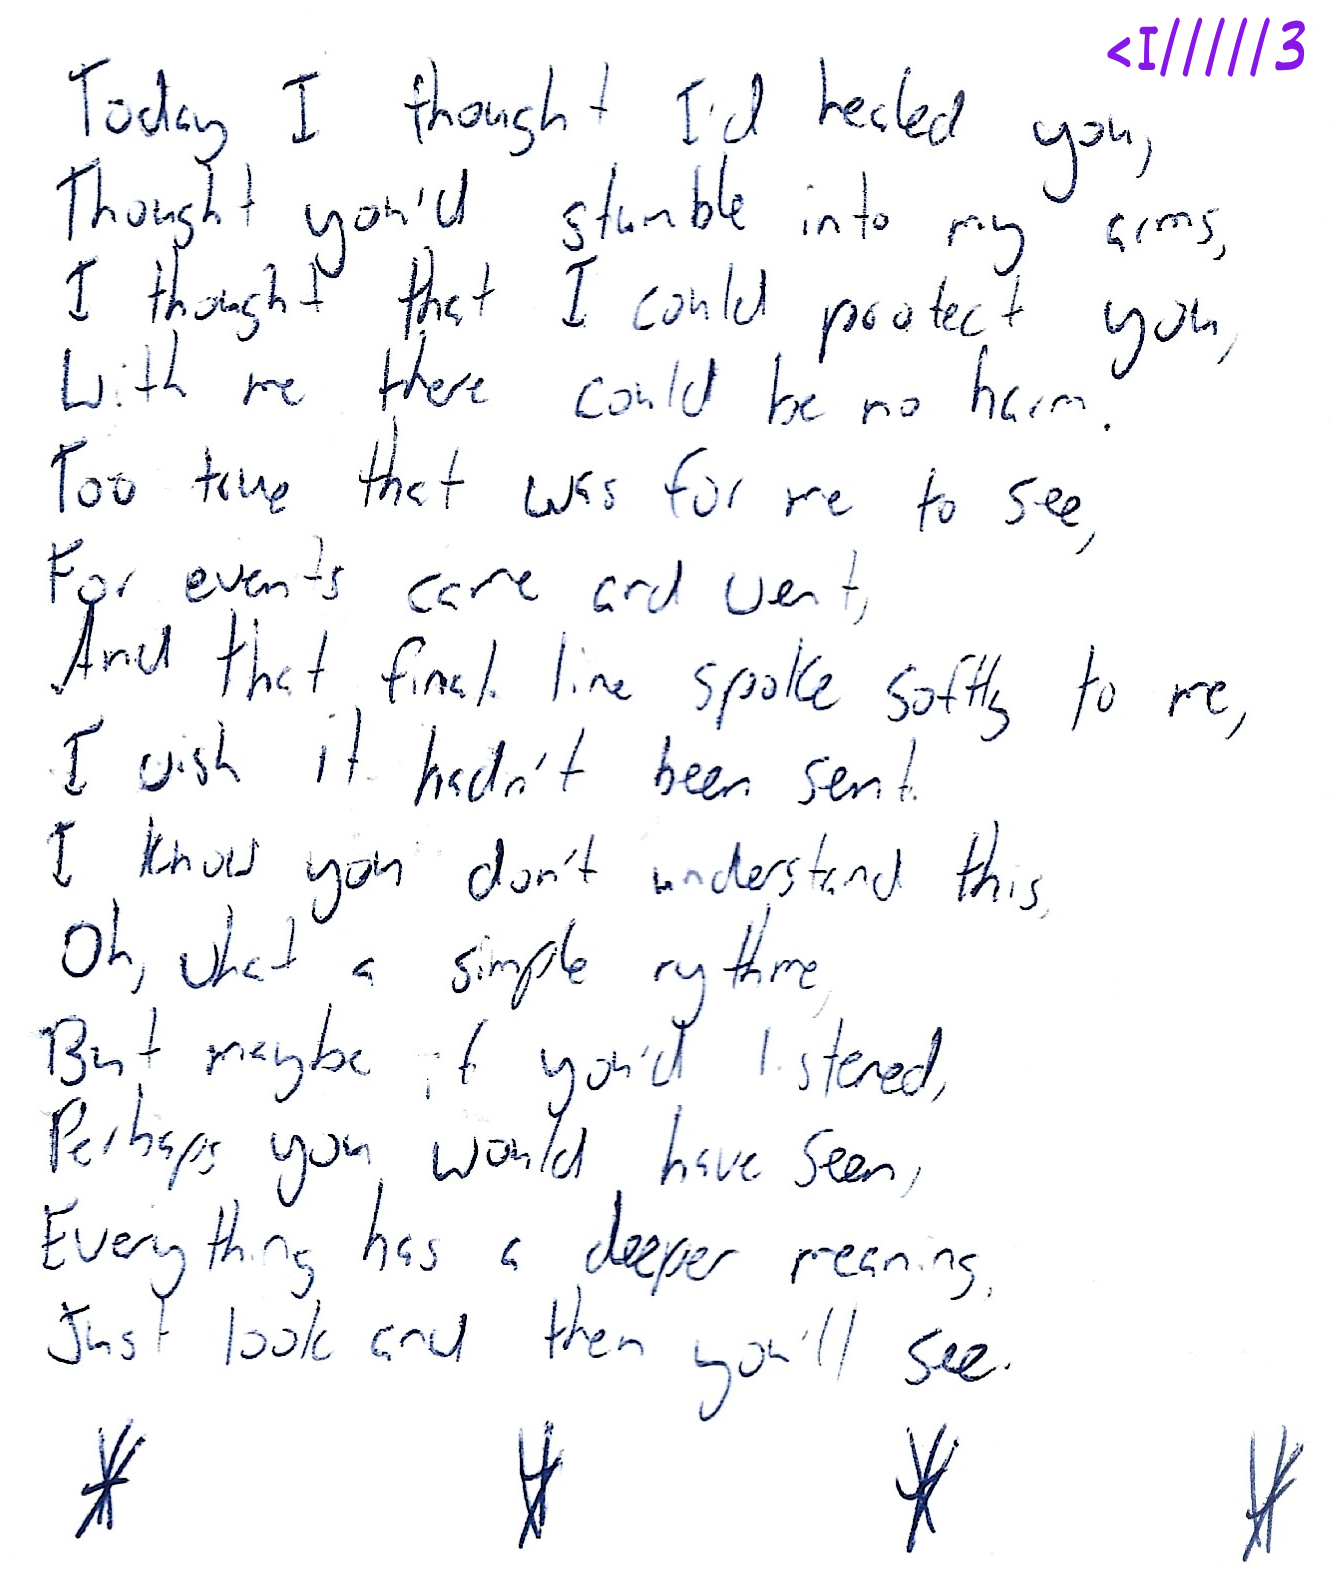 <I/////3
Today I thought I'd healed you,
Thought you'd stumble into my arms,
I thought that I could protect you,
With me there could be no harm.
Too true that was for me to see,
For events came and went,
And that final line spoke softly to me,
I wish it hadn't been sent.
I know you don't understand this,
Oh, what a simple rythme,
But maybe if you'd listened,
Perhaps you would have seen,
Everything has a deeper meaning,
Just look and then you'll see.